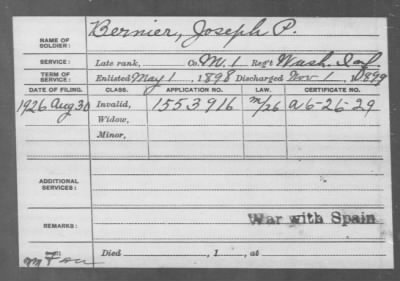 NAME OF SOLDIER: Bernier, Joseph P.
SERVICE: Late rank, Co. M. 1 Reg't Wash. Inf.
TERM OF SERVICE: Enlisted May 1, 1898 Discharged Nov 1, 1899
DATE OF FILING. CLASS. APPLICATION NO. LAW. CERTIFICATE NO.
1926 Aug 30 Invalid, 1553916 m/26 a 6-26-29
Widow,
Minor,
ADDITIONAL SERVICES:
War with Spain
REMARKS:
Died , 1 , at